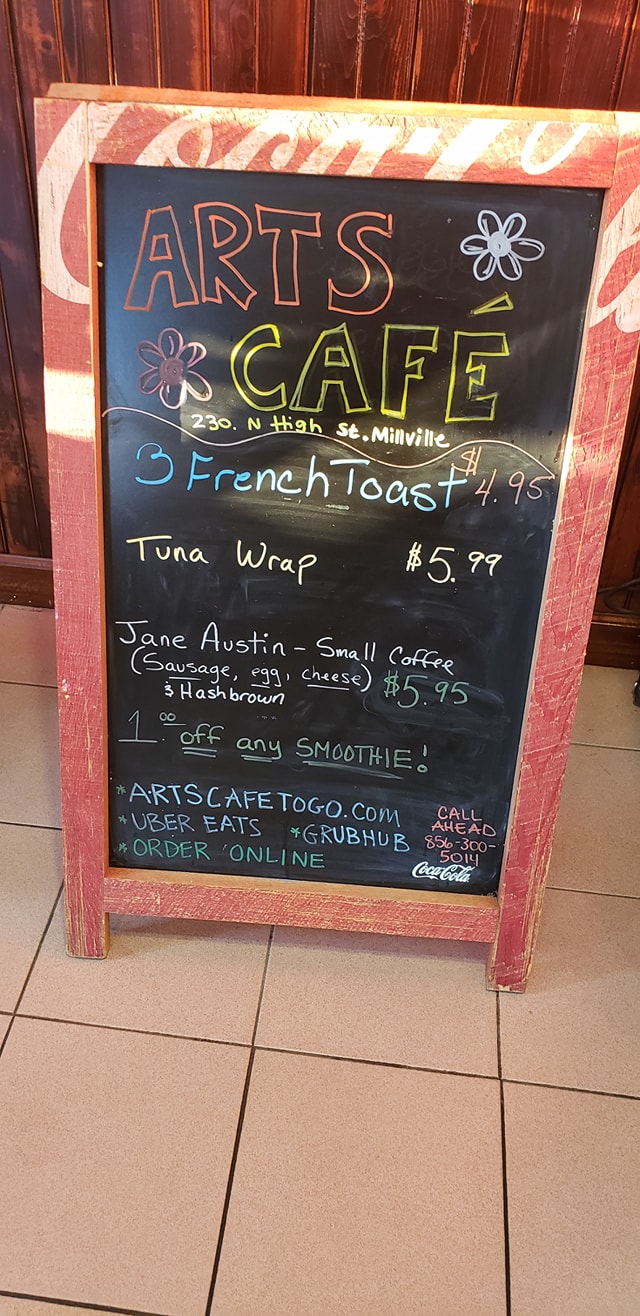 Coca-Co
ARTS
CAFÉ
230. N High St. Millville
3 French Toast $4.95
Tuna Wrap $5.99
Jane Austin - Small Coffee
(Sausage, egg, cheese) $5.95
& Hashbrown
1.00 off any SMOOTHIE!
*ARTSCAFETOGO.COM
*UBER EATS *GRUBHUB
*ORDER ONLINE
CALL
AHEAD
856-300-
5014
Coca-Cola